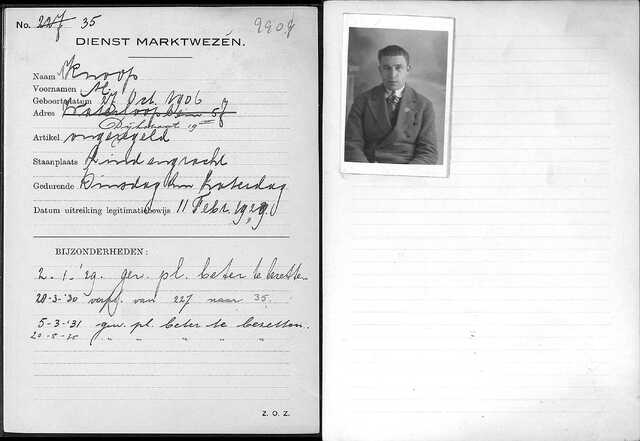 No. 227 35
990g
DIENST MARKTWEZEN.
Naam Knoop
Voornamen M.
Geboortedatum 27 Oct. 1906
Adres Waterlooplein 57
Artikel ongeregeld
Staanplaats Lindengracht
Gedurende Dinsdag t/m Zaterdag
Datum uitreiking legitimatiebewijs 11 Febr. 1929.
BIJZONDERHEDEN:
2.-1.-'29. gew. pl. beter te bezetten.
20-3-'30 verpl. van 227 naar 35.
5-3-'31 gew. pl. beter te bezetten.
" " " " "
Z. O. Z.